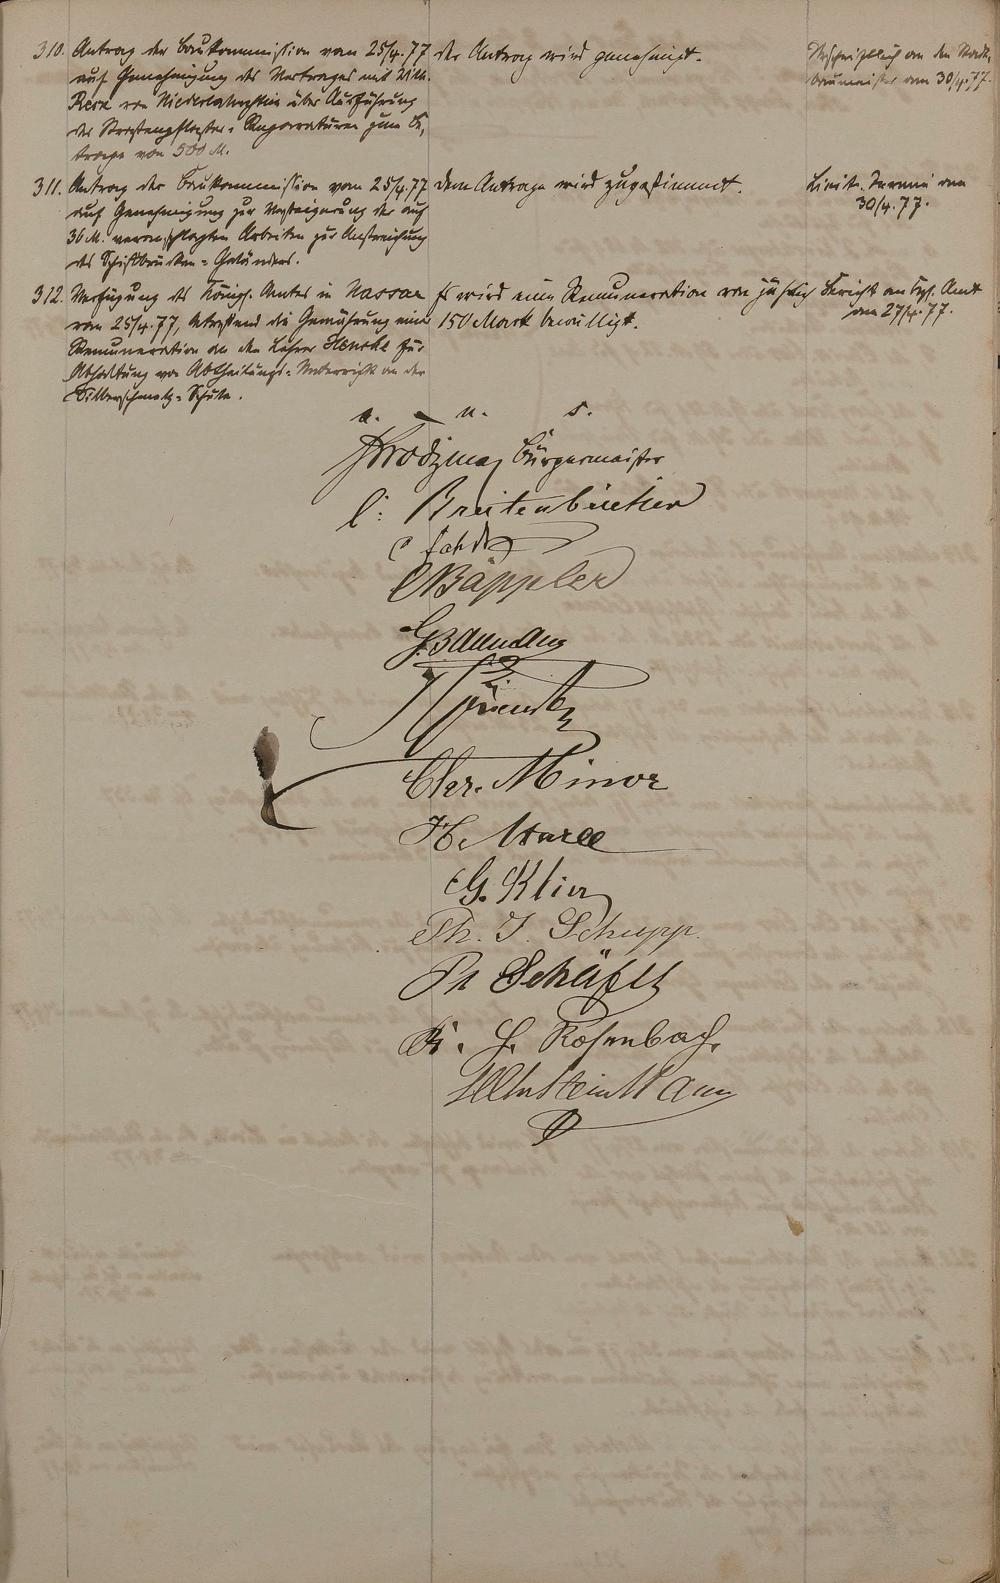 310. Antrag der Baukommission vom 25/4.77
auf Genehmigung des Vertrages mit Wilh.
von Niederlahnstein über Ausführung
der Straßenpflaster-Reparaturen zum Be-
trage von 500 M.
der Antrag wird genehmigt.
Abschriftlich an den Stadt-
baumeister am 30/4.77.
311. Antrag der Baukommission vom 25/4.77
auf Genehmigung zur Versteigerung der auf
36 M. veranschlagten Arbeiten zur Anstreichung
des Schiffbrücken-Geländers.
dem Antrage wird zugestimmt.
Licit. Termin am
30/4.77.
312. Verfügung des Königl. Amtes in Nassau
vom 25/4.77, betreffend die Gewährung einer
Remuneration an den Lehrer Henche für
Abhaltung von Abtheilungs-Unterricht an der
Silberschmelz-Schule.
Es wird eine Remuneration von jährlich
150 Mark bewilligt.
Bericht an Kgl. Amt
am 27/4.77.
v. g. u.
Bürgermeister
C: Breitenbücher
C Bäppler
G. Baumann
Chr. Minor
G. Klein
Ph. J. Schupp
Ph Schäfer
H. Rosenbach